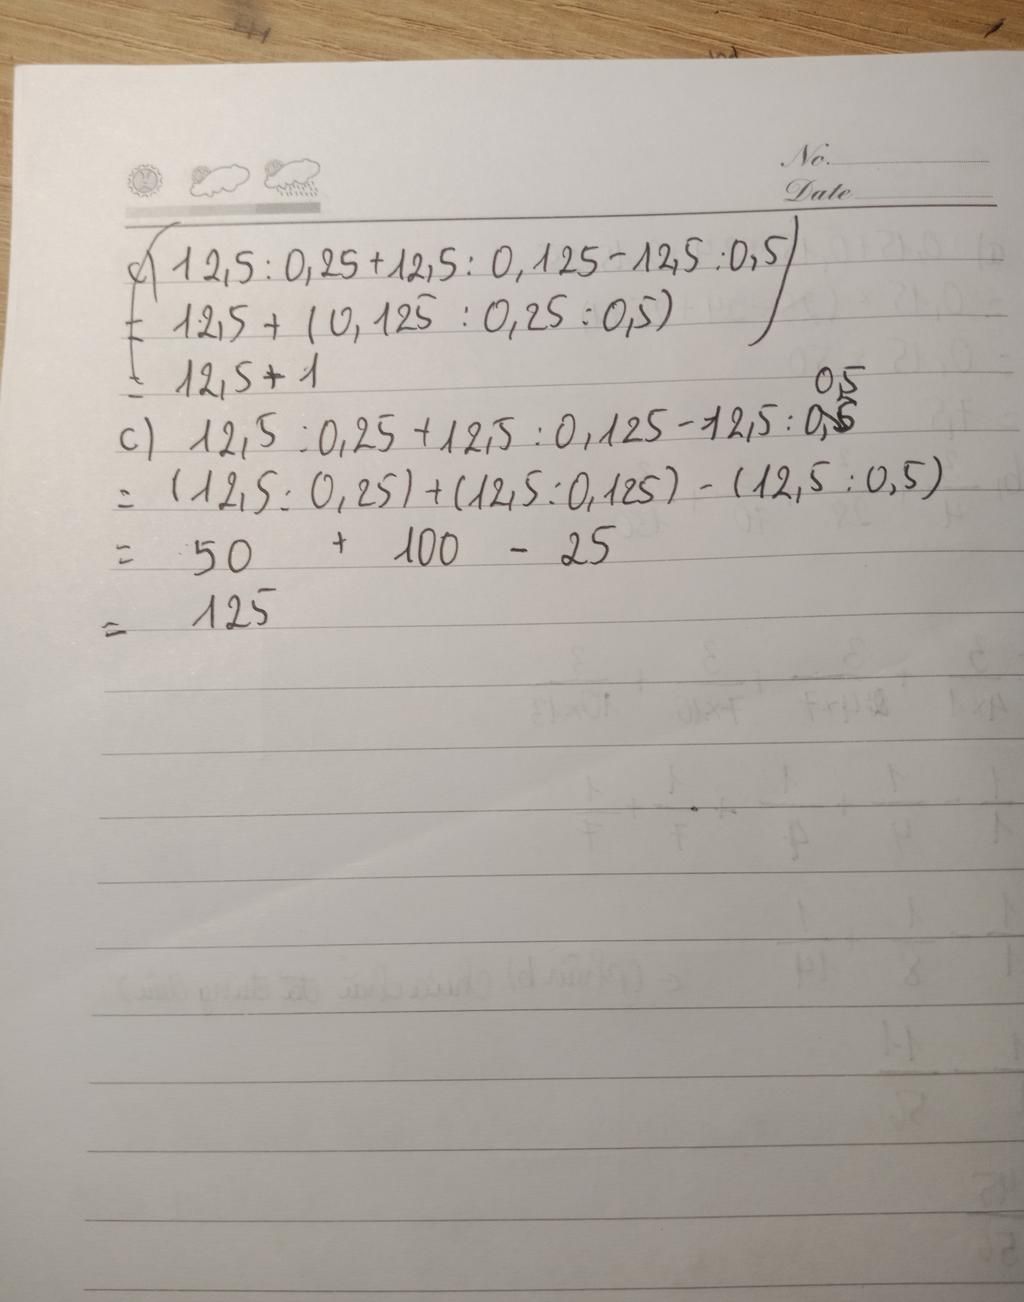 No.
Date
c) 12,5 : 0,25 + 12,5 : 0,125 - 12,5 : 0,5
= 12,5 + (0,125 : 0,25 : 0,5)
= 12,5 + 1
0,5
c) 12,5 : 0,25 + 12,5 : 0,125 - 12,5 : 0,5
= (12,5 : 0,25) + (12,5 : 0,125) - (12,5 : 0,5)
= 50 + 100 - 25
= 125